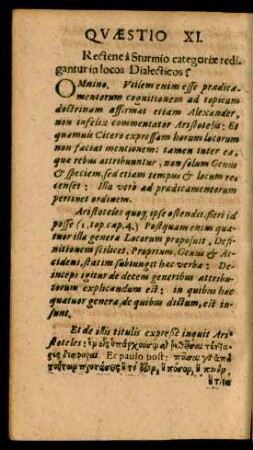 QVÆSTIO XI.
Rectene à Sturmio categoriæ redi-
gantur in locos Dialecticos?
OMnino. Vtilem enim esse prædica-
mentorum cognitionem ad topicam
doctrinam affirmat etiam Alexander,
non infelix commentator Aristotelis: Et
quamuis Cicero expressam horum locorum
non faciat mentionem: tamen inter ea,
quæ rebus attribuuntur, non solum Genus
& speciem, sed etiam tempus & locum re-
censet: Illa verò ad prædicamentorum
pertinet ordinem.
Aristoteles quoq, ipse ostendit, fieri id
posse (1. top. cap. 4.) Postquam enim qua-
tuor illa genera Locorum proposuit, Defi-
nitionem scilicet, Proprium, Genus & Ac-
cidens, statim subiungit hæc verba: De-
inceps igitur de decem generibus attribu-
torum explicandum est: in quibus hæ
quatuor genera, de quibus dictum, est in-
sunt.
Et de istis titulis expressè inquit Ari-
stoteles:
Et paulo post: